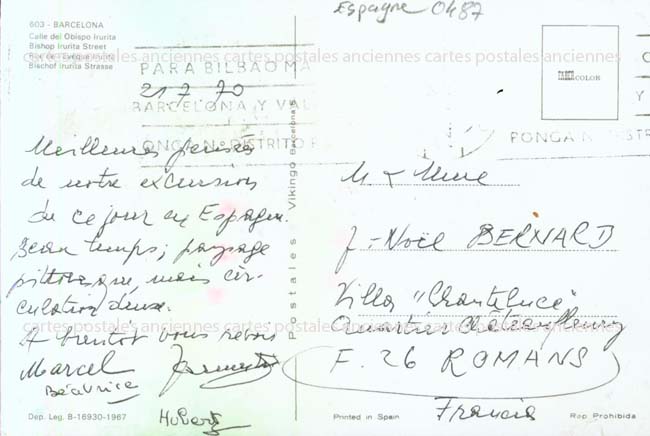 Espagne 0487
603 - BARCELONA
Calle del Obispo Irurita
Bishop Irurita Street
Rue de l'Evêque Irurita
Bischof Irurita Strasse
cartes postales anciennes cartes postales anciennes cartes postales anciennes
PARA BILBAO MA
BARCELONA Y VAL
PONGA Nº DISTRITO P
PONGA Nº DISTR
21 7 70
Meilleures pensées
de notre excursion
de ce jour en Espagne.
Beau temps; paysage
pittoresque, mais cir-
culation dense.
A bientôt vous revoir
Marcel
Béatrice
Hubert
Postales Vikingo Barcelona
COLOR
M & Mme
J-Noël BERNARD
Villa "Chanteluce"
Quartier Châteaufleury
F. 26 ROMANS
Francia
cartes postales anciennes cartes postales anciennes cartes postales anciennes
Dep. Leg. B-16930-1967
Printed in Spain
Rep Prohibida